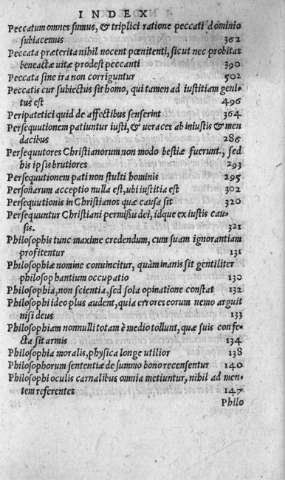 INDEX
Peccatum omnes sumus, & triplici ratione peccati dominio
subiacemus 362
Peccata præterita nihil nocent pœnitenti, sicut nec probitas
beneactæ vitæ prodest peccanti 390
Peccata sine ira non corriguntur 502
Peccatis cur subiectus sit homo, qui tamen ad iustitiam geni-
tus est 496
Peripatetici quid de affectibus senserint 364
Persequutionem patiuntur iusti, & veraces ab iniustis & men
dacibus 286
Persequutores Christianorum non modo bestiæ fuerunt, sed
his ipsis brutiores 293
Persequutionem pati non stulti hominis 295
Personarum acceptio nulla est, ubi iustitia est 302
Persequutionis in Christianos quæ causa sit 320
Persequuntur Christiani permissu dei, idque ex iustis cau-
sis. 321
Philosophis tunc maxime credendum, cum suam ignorantiam
profitentur 131
Philosophiæ nomine conuincitur, quàm inanis sit gentiliter
philosophantium occupatio 130
Philosophia, non scientia, sed sola opinatione constat 132
Philosophi ideo plus audent, quia errores eorum nemo arguit
nisi deus 133
Philosophiam nonnulli totam è medio tollunt, quæ suis confe-
cta sit armis 134
Philosophia moralis, physica longe utilior 138
Philosophorum sententiæ de summo bono recensentur 140
Philosophi oculis carnalibus omnia metiuntur, nihil ad men-
tem referentes 147
Philo